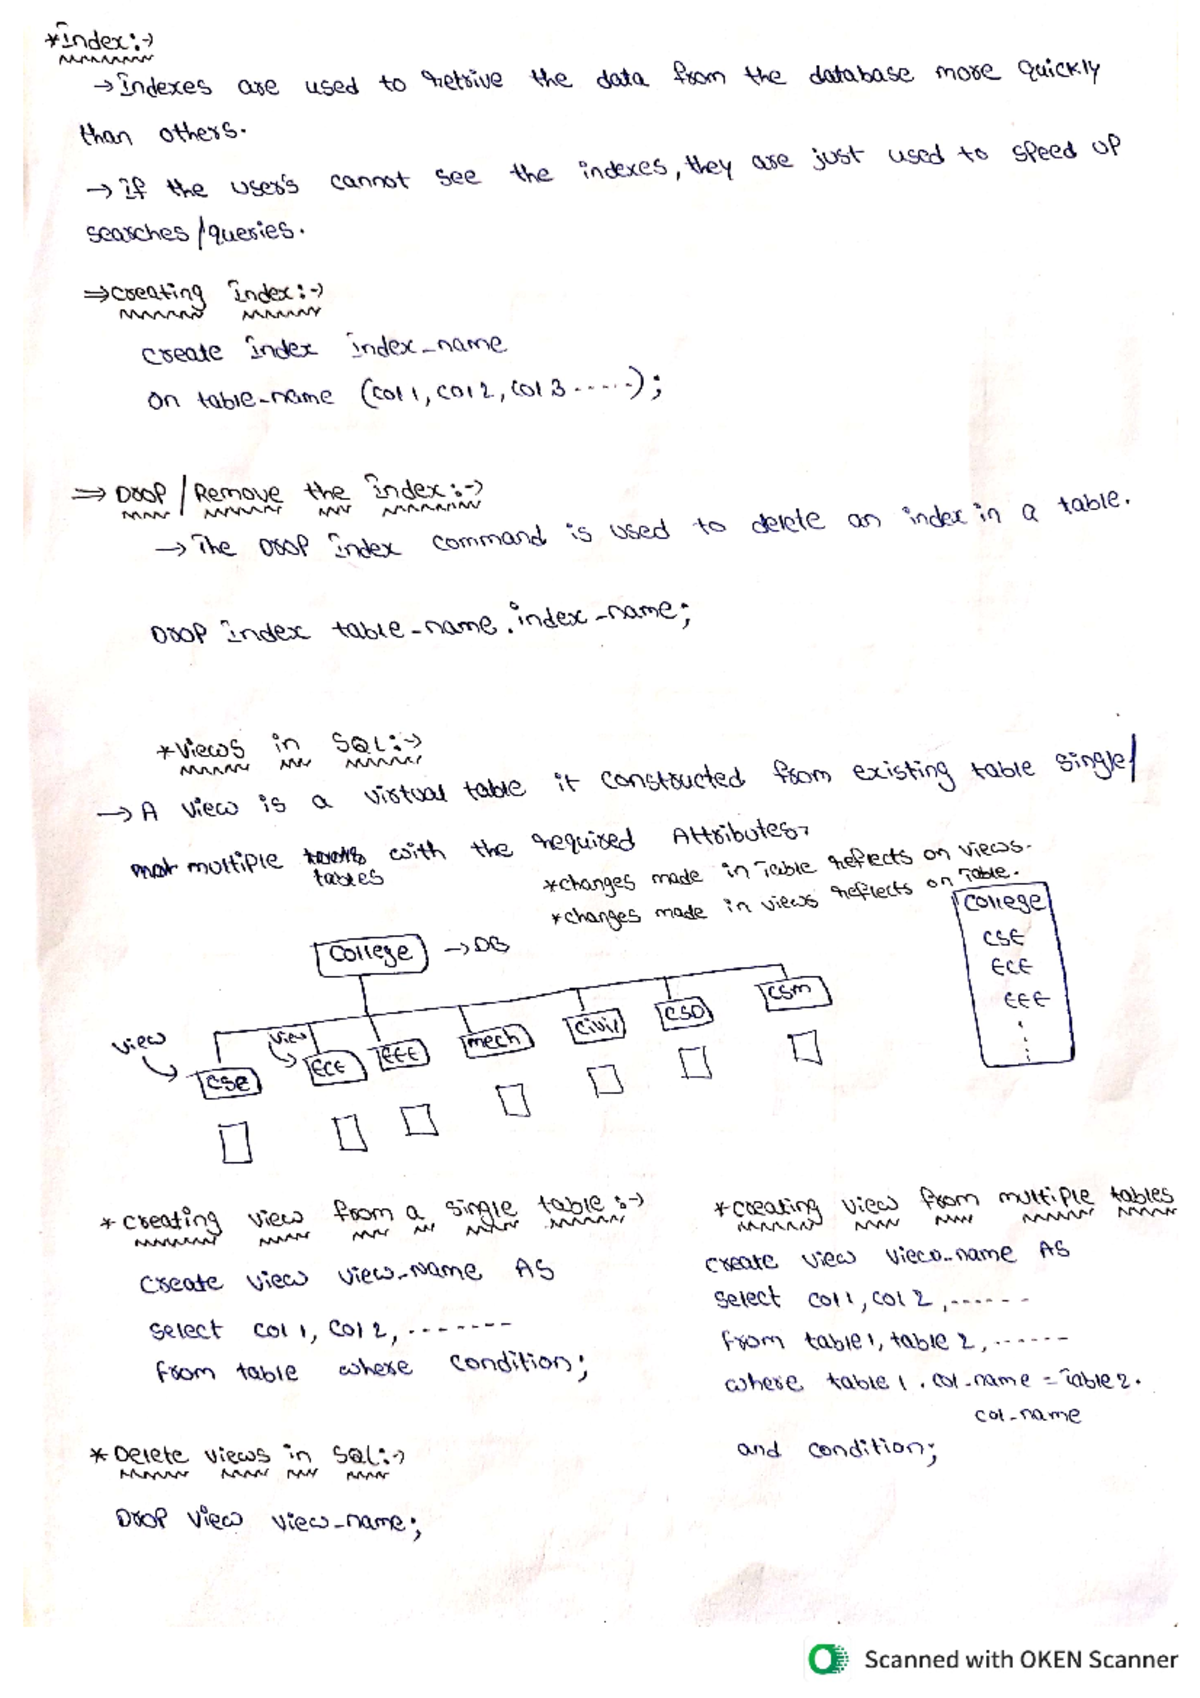 *Index:→
→ Indexes are used to retrive the data from the database more quickly
than others.
→ if the users cannot see the indexes, they are just used to speed up
searches/queries.
⇒ creating index:→
create index index_name
on table-name (col1, col2, col3 ......);
⇒ Drop / Remove the index:→
→ The Drop index command is used to delete an index in a table.
Drop index table-name.index-name;
*Views in SQL:→
→ A view is a virtual table it constructed from existing table single/
multiple with the required Attributes.
tables
*changes made in Table reflects on views.
*changes made in views reflects on Table.
College → DB
College
CSE
ECE
EEE
view
view
CSE
ECE
EEE
mech
civil
CSD
CSM
* creating view from a single table:→
create view view-Name AS
select col1, col2, .......
from table where condition;
* creating view from multiple tables
create view view-name AS
select col1, col2, ......
from table1, table2, ......
where table1.col-name = Table2.
col-name
and condition;
* Delete views in SQL:→
Drop view view-name;
Scanned with OKEN Scanner